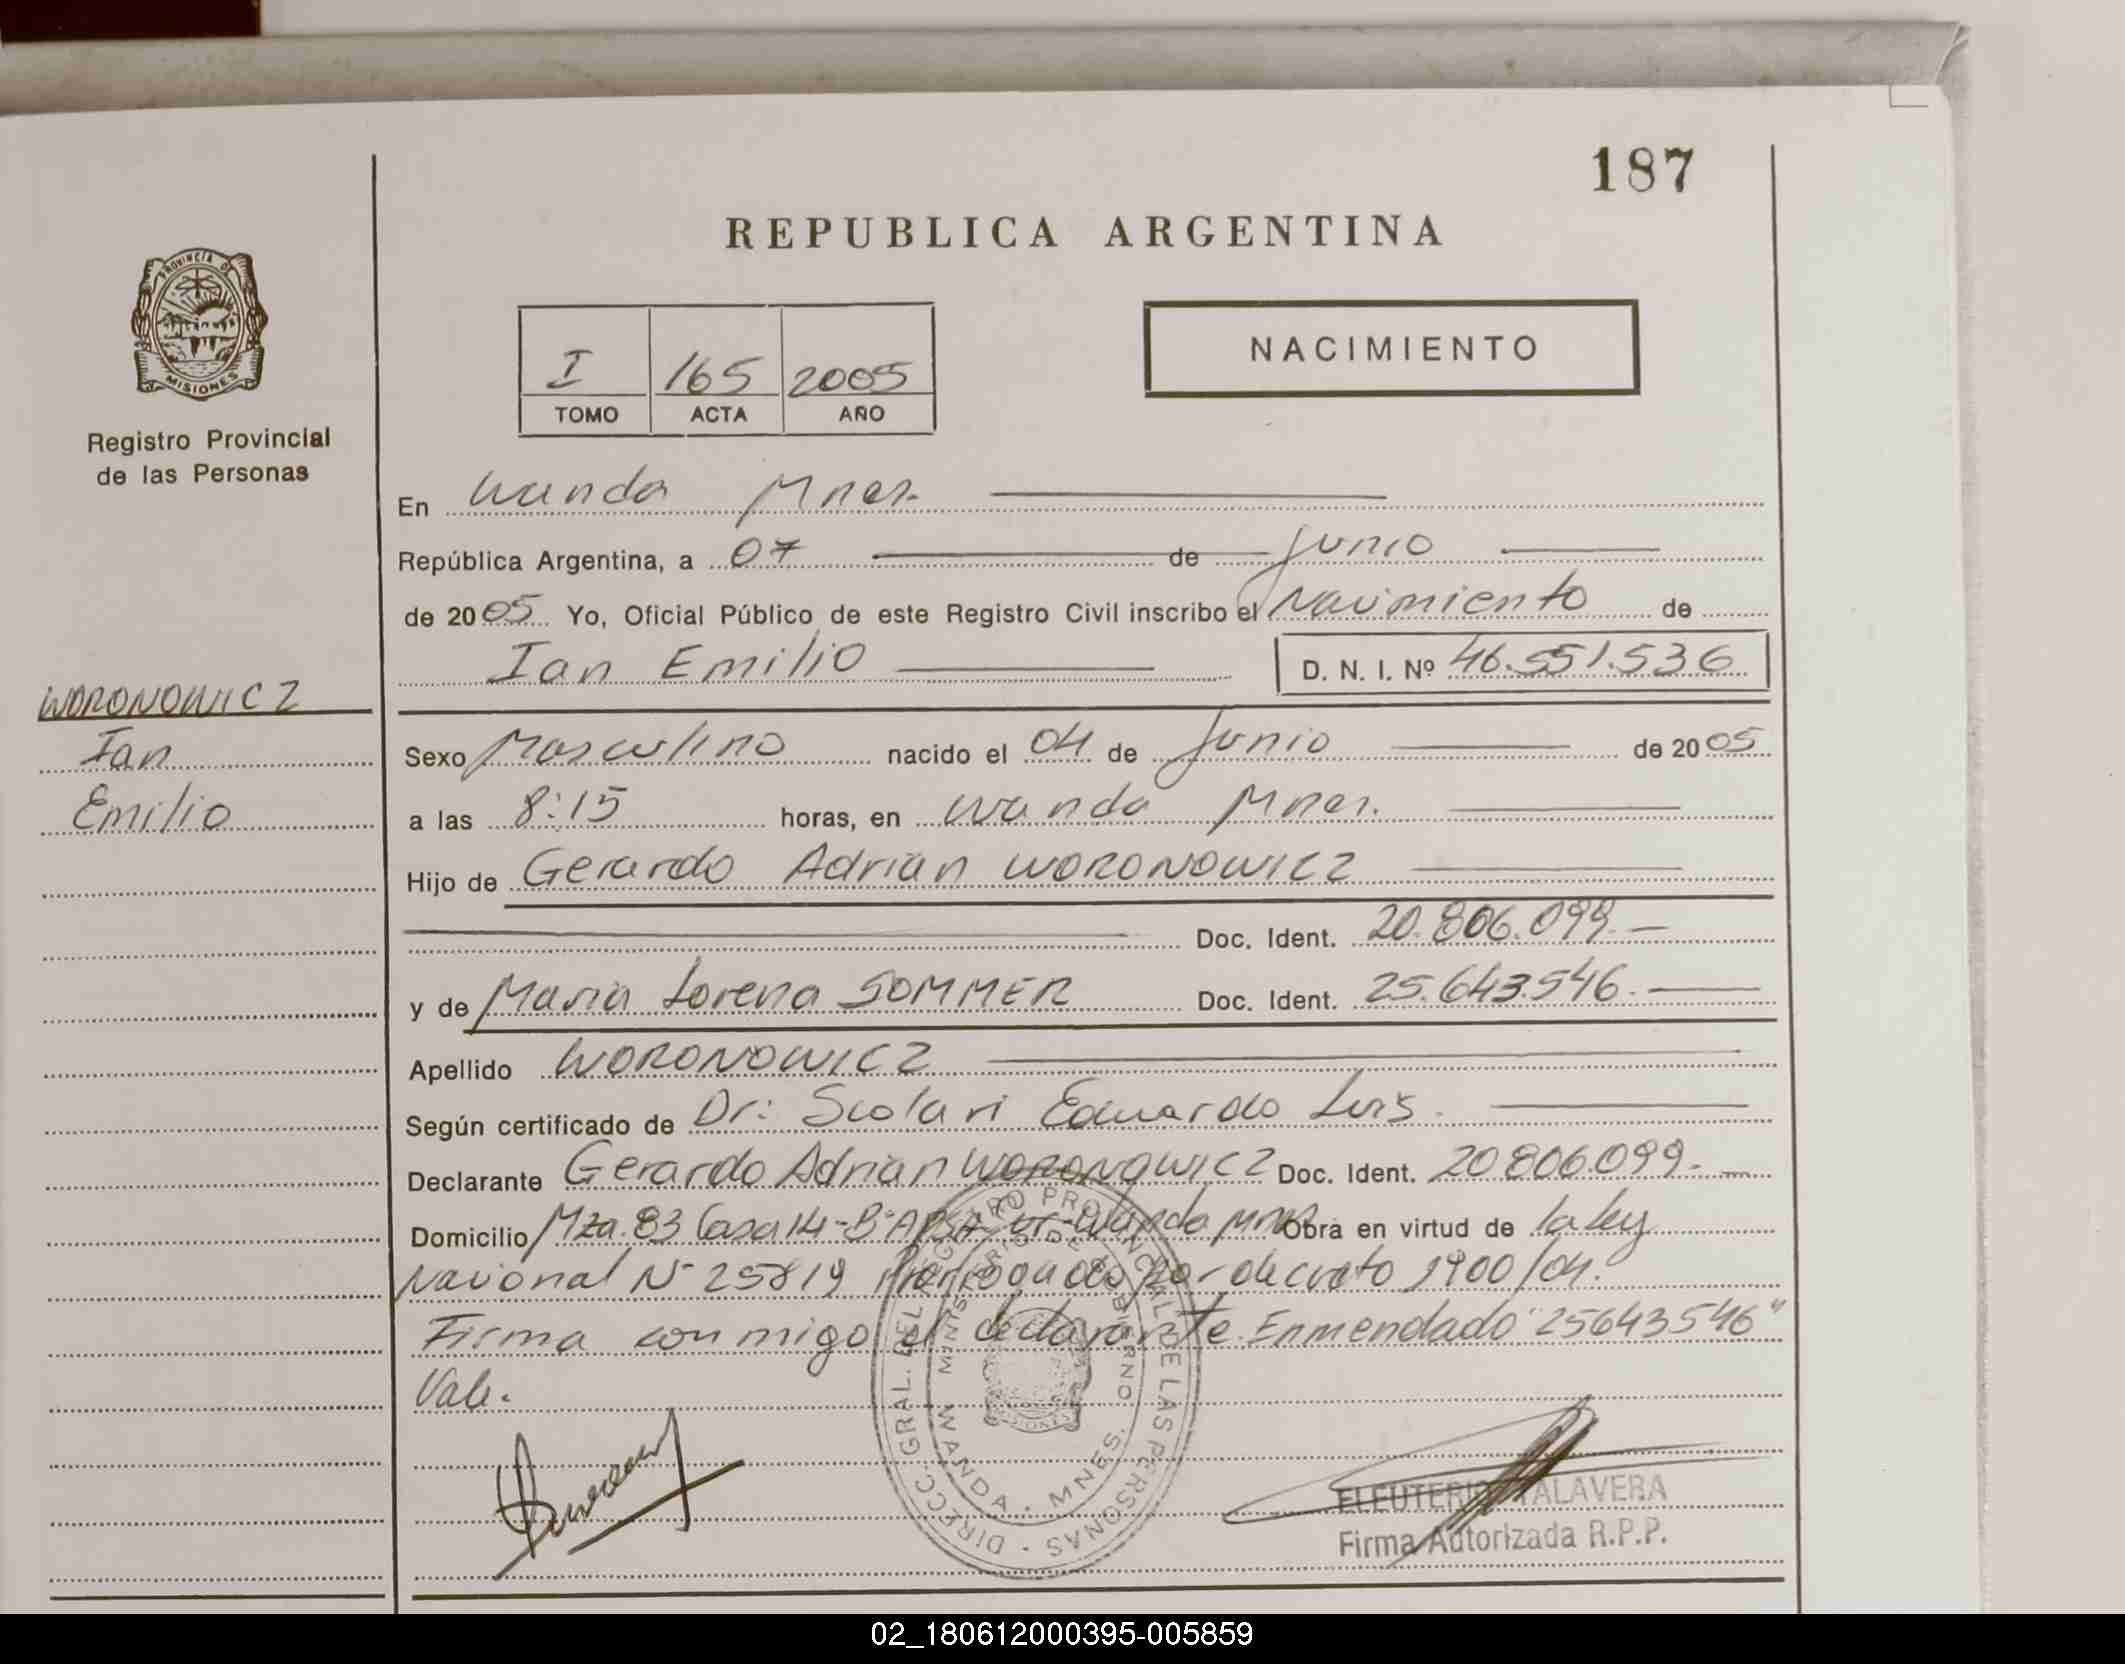 187
REPUBLICA ARGENTINA
PROVINCIA DE
MISIONES
Registro Provincial
de las Personas
I 165 2005
TOMO ACTA AÑO
NACIMIENTO
En Wanda Mnes.
República Argentina, a 07 de Junio
de 2005 Yo, Oficial Público de este Registro Civil inscribo el Nacimiento de
Ian Emilio D. N. I. Nº 46.551.536
WORONOWICZ
Ian
Emilio
Sexo Masculino nacido el 04 de Junio de 2005
a las 8:15 horas, en Wanda Mnes.
Hijo de Gerardo Adrian WORONOWICZ
Doc. Ident. 20.806.099.-
y de Maria Lorena SOMMER Doc. Ident. 25.643.546.-
Apellido WORONOWICZ
Según certificado de Dr: Scolari Eduardo Luis.
Declarante Gerardo Adrian WORONOWICZ Doc. Ident. 20.806.099.-
Domicilio Mza. 83 Casa 14-Bº Wanda Mnes Obra en virtud de la ley
Nacional Nº 25819 Prorrogado por decreto 1900/04.
Firma conmigo el declarante. Enmendado "25643546"
Vale.
DIRECC. GRAL. DEL REGISTRO PROVINCIAL DE LAS PERSONAS
MINISTERIO DE GOBIERNO
WANDA - MNES.
MISIONES
ELEUTERIO TALAVERA
Firma Autorizada R.P.P.
02_180612000395-005859